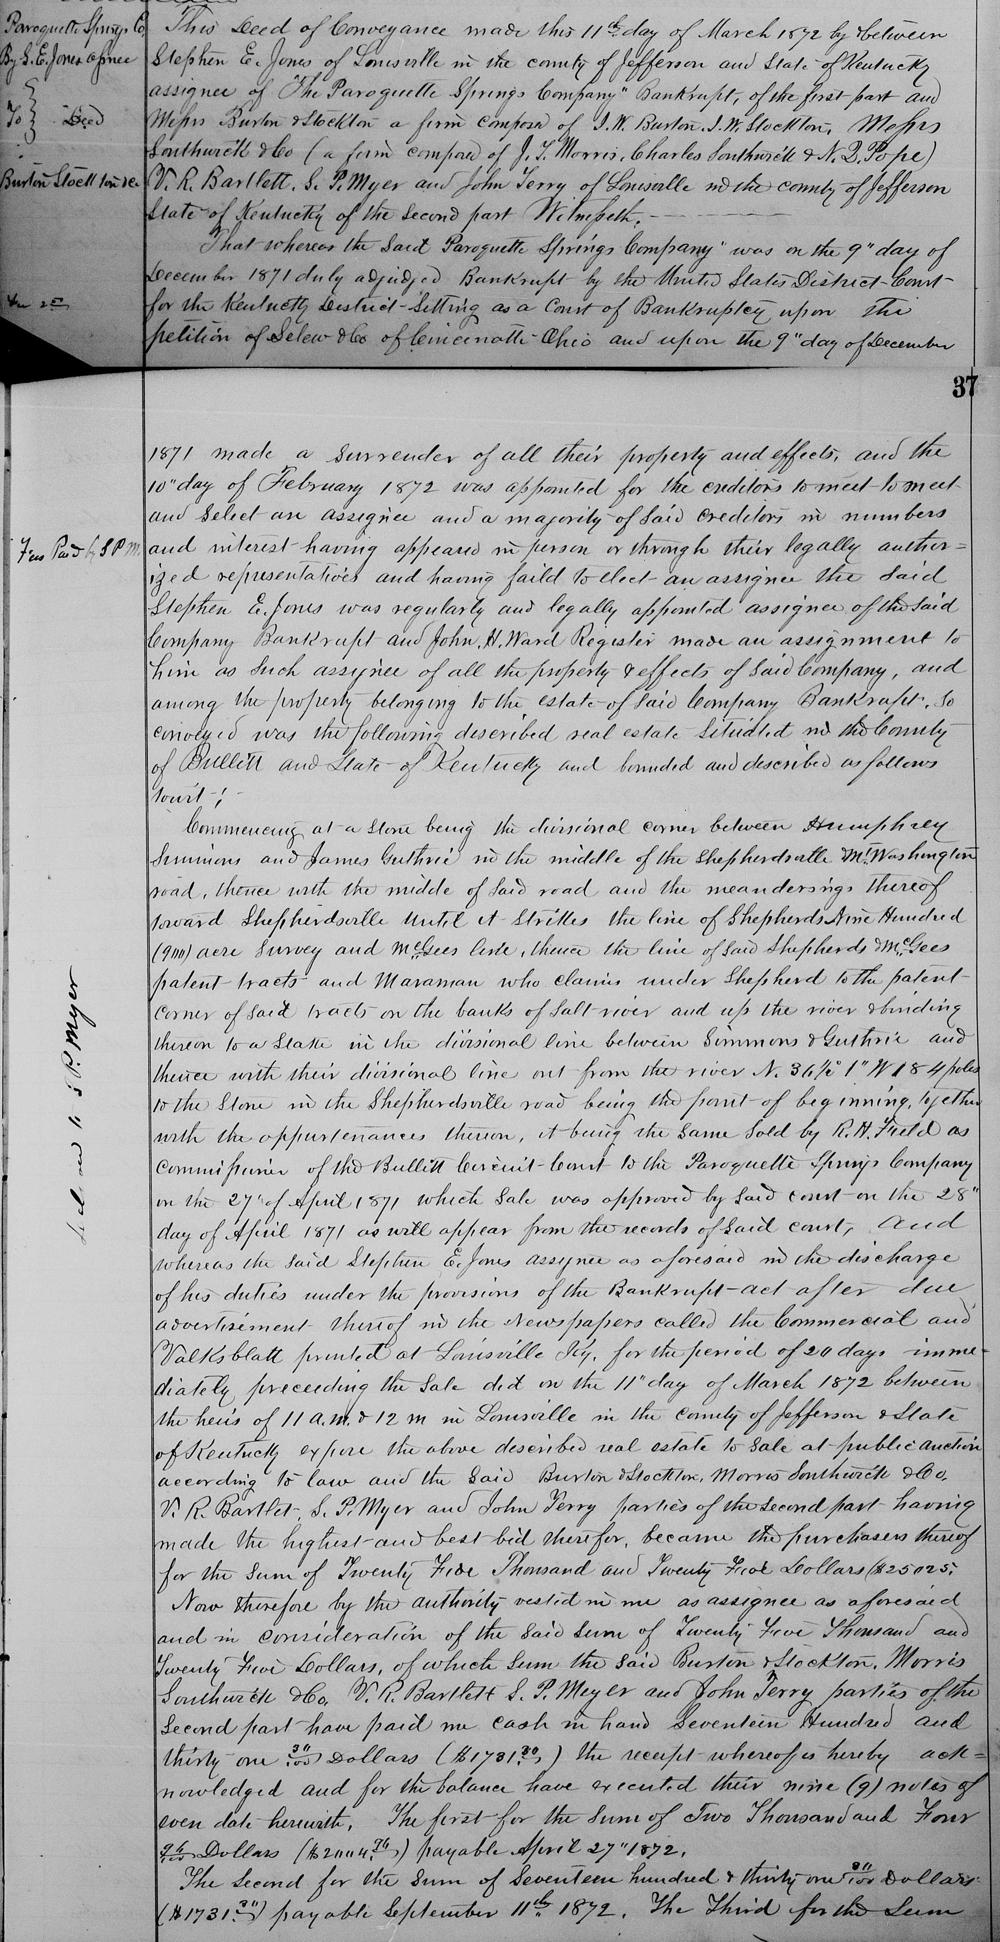 Paroquette Springs Co
By S. E. Jones assignee
To } Deed
Burton Stockton &c
This Deed of Conveyance made this 11th day of March 1872 by & between
Stephen E. Jones of Louisville in the county of Jefferson and State of Kentucky
assignee of "The Paroquette Springs Company" Bankrupt, of the first part and
Messrs Burton & Stockton a firm composed of I. W. Burton. I. W. Stockton, Messrs
Southwick & Co (a firm composed of J. T. Morris, Charles Southwick & N. Q. Pope)
V. R. Bartlett. S. P. Myer and John Terry of Louisville in the county of Jefferson
State of Kentucky of the second part Witnesseth.
That whereas the said Paroquette Springs Company" was on the 9" day of
December 1871 duly adjudged Bankrupt by the United States District Court
for the Kentucky District Sitting as a Court of Bankruptcy upon the
petition of Selew & Co of Cincinatti Ohio and upon the 9" day of December
37
1871 made a surrender of all their property and effects, and the
10" day of February 1872 was appointed for the creditors to meet to meet
and select an assignee and a majority of said creditors in numbers
Fees Paid by S P M.
and interest having appeared in person or through their legally author=
ized representatives and having faild to elect an assignee the said
Stephen E. Jones was regularly and legally appointed assignee of the said
Company Bankrupt and John. H. Ward Register made an assignment to
him as such assignee of all the property & effects of said Company, and
among the property belonging to the estate of said Company Bankrupt, so
conveyed was the following described real estate situated in the County
of Bullitt and State of Kentucky and bounded and described as follows
towit;
Commencing at a stone being the divisional corner between Humphrey
Simmons and James Guthrie in the middle of the Shepherdsville & Mt Washington
road, thence with the middle of said road and the meanderings thereof
toward Shepherdsville until it strikes the line of Shepherds Nine Hundred
(900) acre survey and McGees line, thence the line of said Shepherds & McGees
patent tracts and Maraman who claims under Shepherd to the patent
corner of said tracts on the banks of Salt river and up the river & binding
thereon to a Stake in the divisional line between Simmons & Guthrie and
thence with their divisional line out from the river N. 36½° 1" W 184 poles
to the Stone in the Shepherdsville road being the point of beginning, together
with the oppurtenances thereon, it being the same sold by R. H. Field as
commissioner of the Bullitt Circuit Court to the Paroquette Springs Company
on the 27" of April 1871 which sale was approved by said court on the 28"
day of April 1871 as will appear from the records of said court, and
whereas the said Stephen E. Jones assignee as aforesaid in the discharge
of his duties under the provisions of the Bankrupt act after due
advertisement thereof in the Newspapers called the Commercial and
Valksblatt printed at Louisville Ky. for the period of 20 days imme=
diately preceeding the sale did on the 11" day of March 1872 between
the hours of 11 a.m. & 12 m in Louisville in the county of Jefferson & State
of Kentucky expose the above described real estate to sale at public auction
according to law and the said Burton & Stockton, Morris Southwick & Co,
V. R. Bartlet, S. P. Myer and John Terry parties of the second part having
made the highest and best bid therefor, became the purchasers thereof
for the sum of Twenty Five Thousand and Twenty Five Dollars ($25025.
Now therefore by the authority vested in me as assignee as aforesaid
and in consideration of the said sum of Twenty Five Thousand and
Twenty Five Dollars, of which sum the said Burton & Stockton, Morris
Southwick & Co, V. R. Bartlett S. P. Meyer and John Terry parties of the
second part have paid me cash in hand Seventeen Hundred and
thirty one 30/100 Dollars ($1731.30/) the receipt whereof is hereby ack=
nowledged and for the balance have executed their nine (9) notes of
even date herewith. The first for the sum of Two Thousand and Four
Dollars payable April 27" 1872.
The second for the sum of seventeen hundred & thirty one 30/100 Dollars
($1731.30) payable September 11th 1872. The Third for the sum